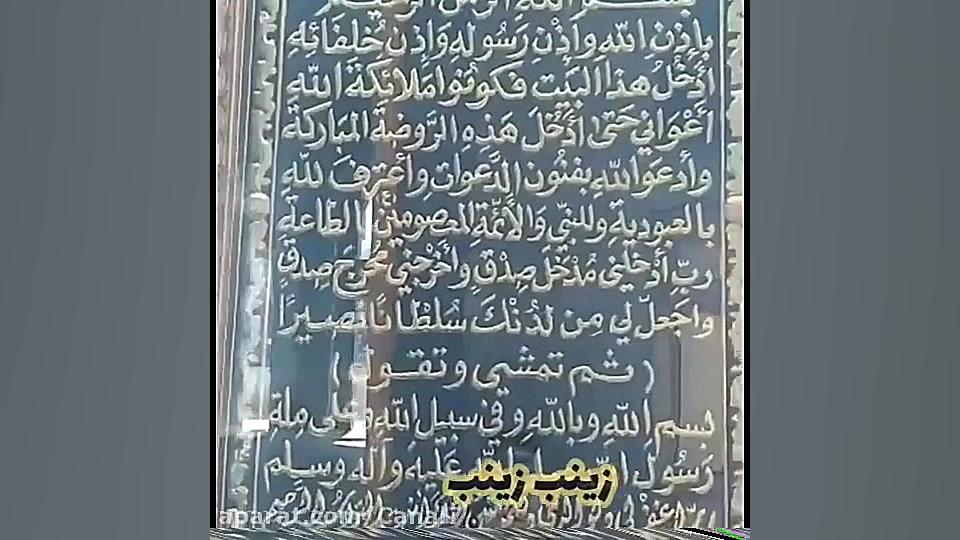 بسم الله الرحمن الرحيم
بِإِذْنِ اللهِ وَإِذْنِ رَسُولِهِ وَإِذْنِ خُلَفَائِهِ
أَدْخُلُ هذَا البَيْتَ فَكُونُوا مَلائِكَةَ اللهِ
أَعْوَانِي حَتّى أَدْخُلَ هَذِهِ الرَّوْضَةَ المُبَارَكَةَ
وَأَدْعُوَ اللهَ بِفُنُونِ الدَّعَوَاتِ وَأَعْتَرِفَ للهِ
بِالعُبُودِيَةِ وَلِلنَّبِيِّ وَالأَئِمَّةِ المَعْصُومِينَ بِالطَّاعَةِ
رَبِّ أَدْخِلْنِي مُدْخَلَ صِدْقٍ وَأَخْرِجْنِي مُخْرَجَ صِدْقٍ
وَاجْعَلْ لِي مِن لَدُنْكَ سُلْطَانًا نَصِيرًا
( ثم تمشي وتقول )
بسم اللهِ وباللهِ وفي سبيلِ اللهِ وعلى ملةِ
رَسُولِ اللهِ صلى الله عَلَيْهِ وَآلِهِ وسلم
زینب زینب
aparat.com/Canali